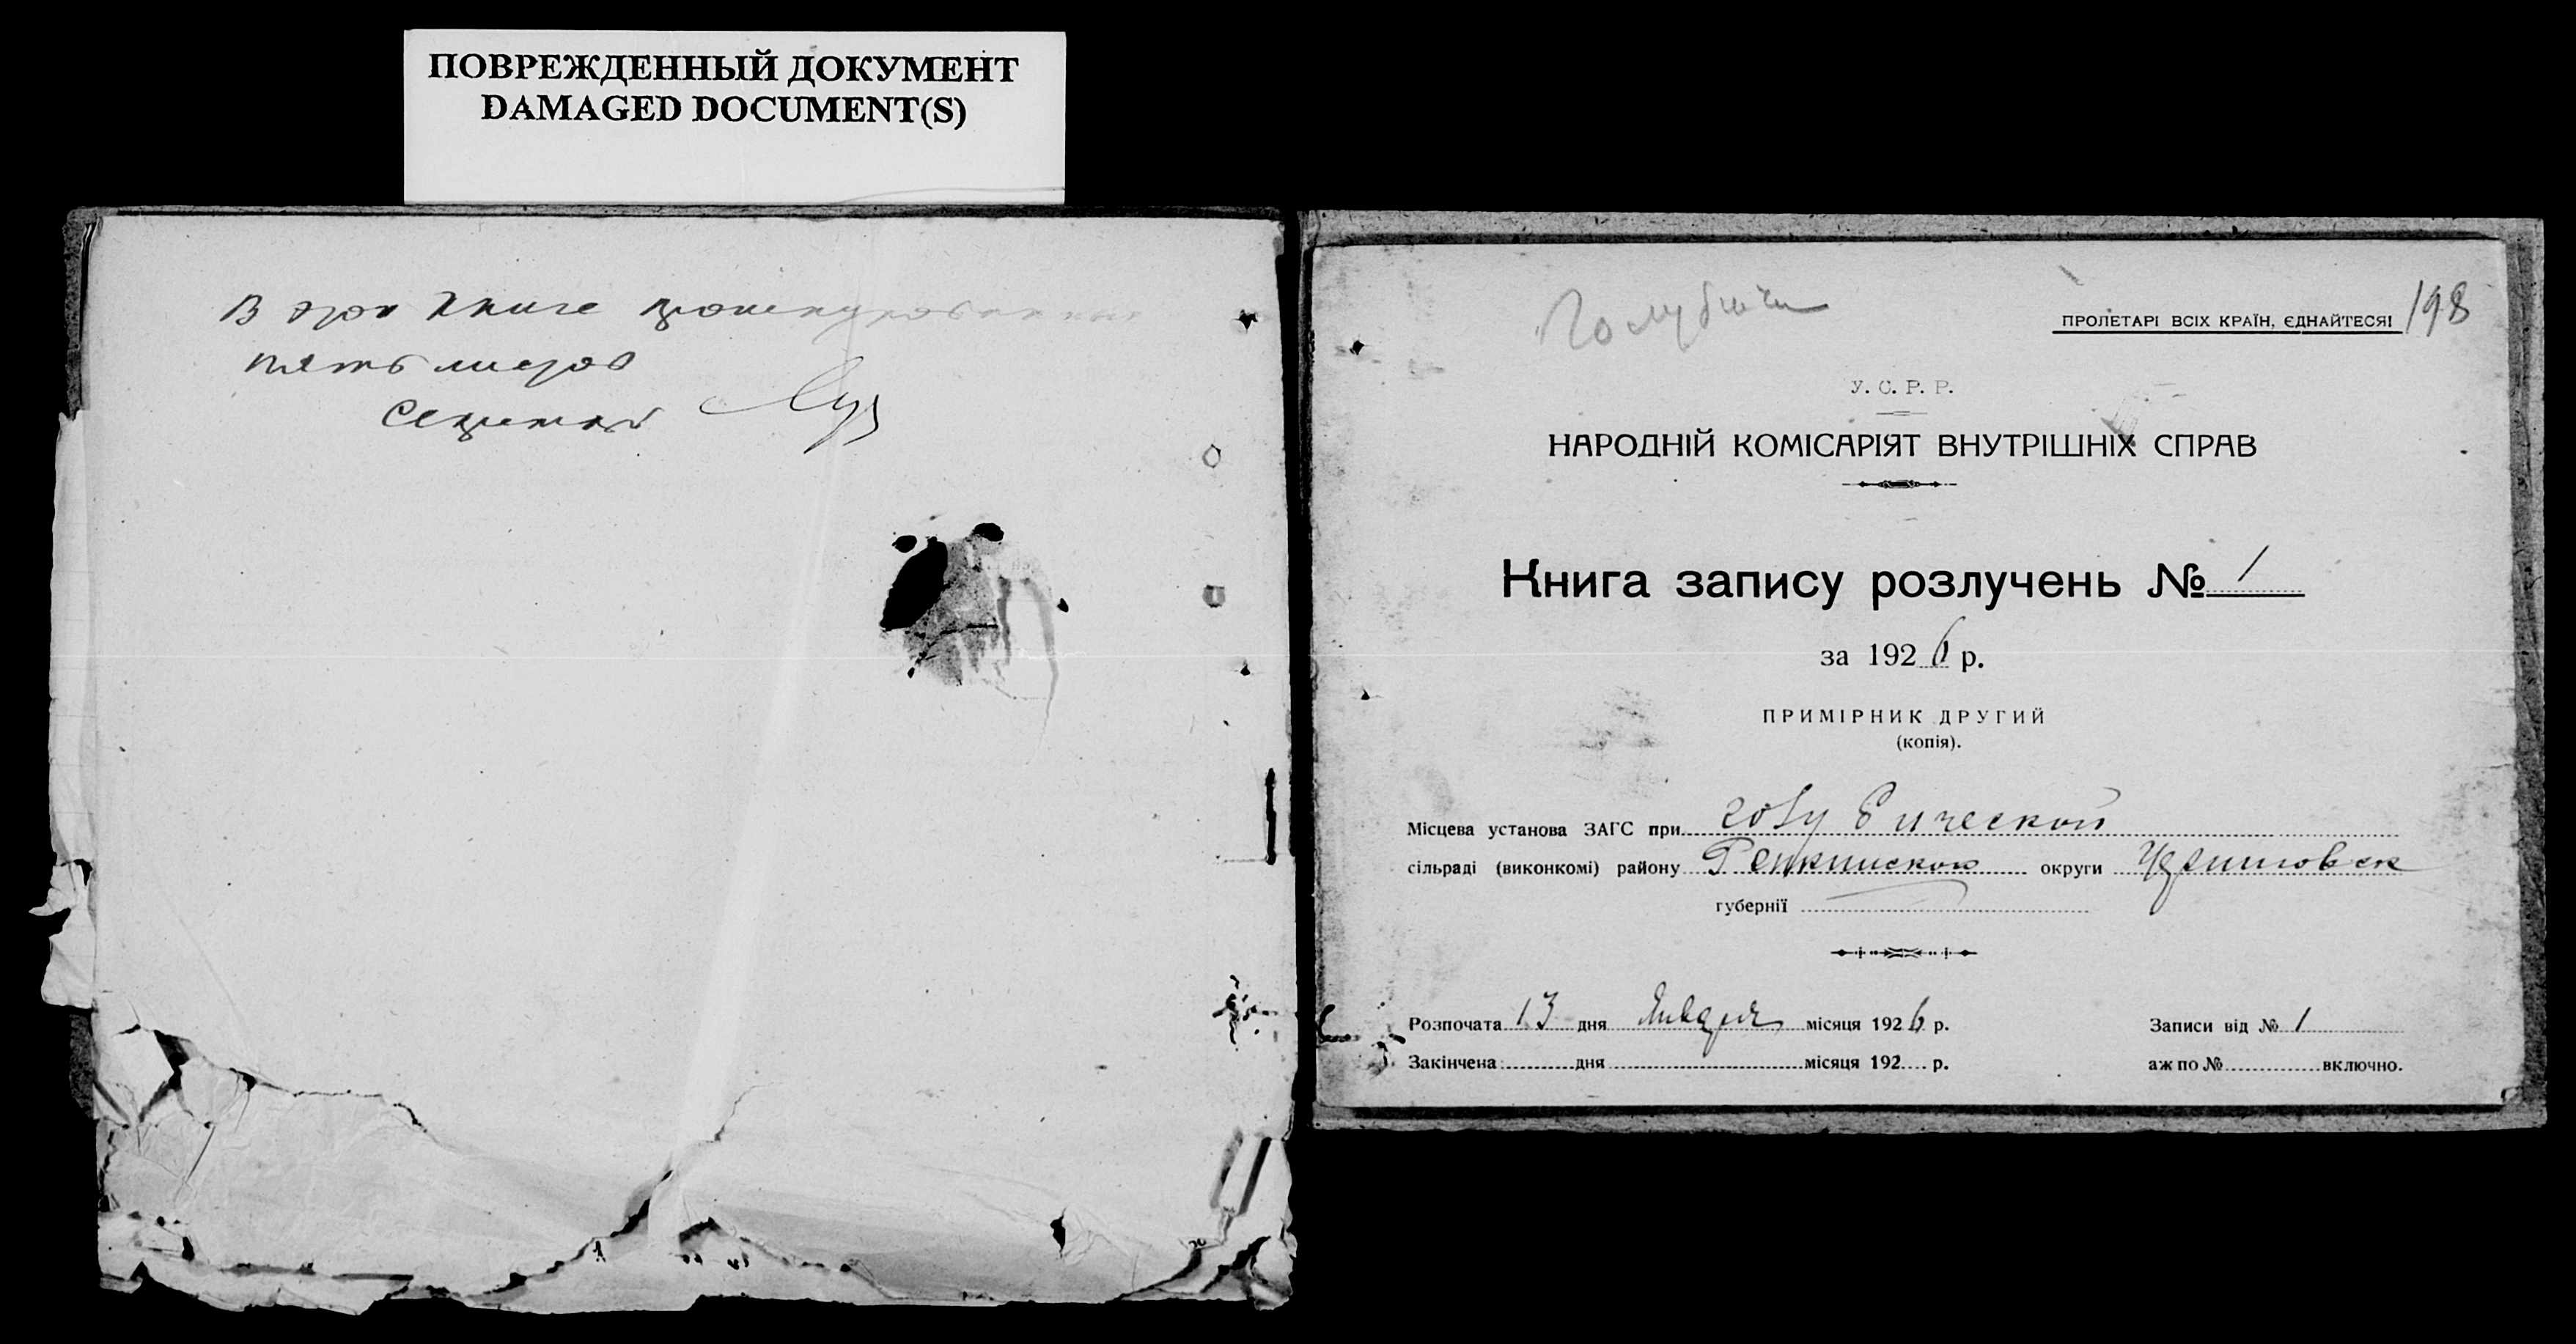 ПОВРЕЖДЕННЫЙ ДОКУМЕНТ
DAMAGED DOCUMENT(S)
В этой книге
пять листов
Голубичи
ПРОЛЕТАРІ ВСІХ КРАЇН, ЄДНАЙТЕСЯ!
198
У. С. Р. Р.
НАРОДНІЙ КОМІСАРІЯТ ВНУТРІШНІХ СПРАВ
Книга запису розлучень № 1
за 1926 р.
ПРИМІРНИК ДРУГИЙ
(копія).
Місцева установа ЗАГС при
сільраді (виконкомі) району Репкинской округи Черниговск
губернії
Розпочата 13 дня Января місяця 1926 р. Записи від № 1
Закінчена дня місяця 192 р. аж по № включно.